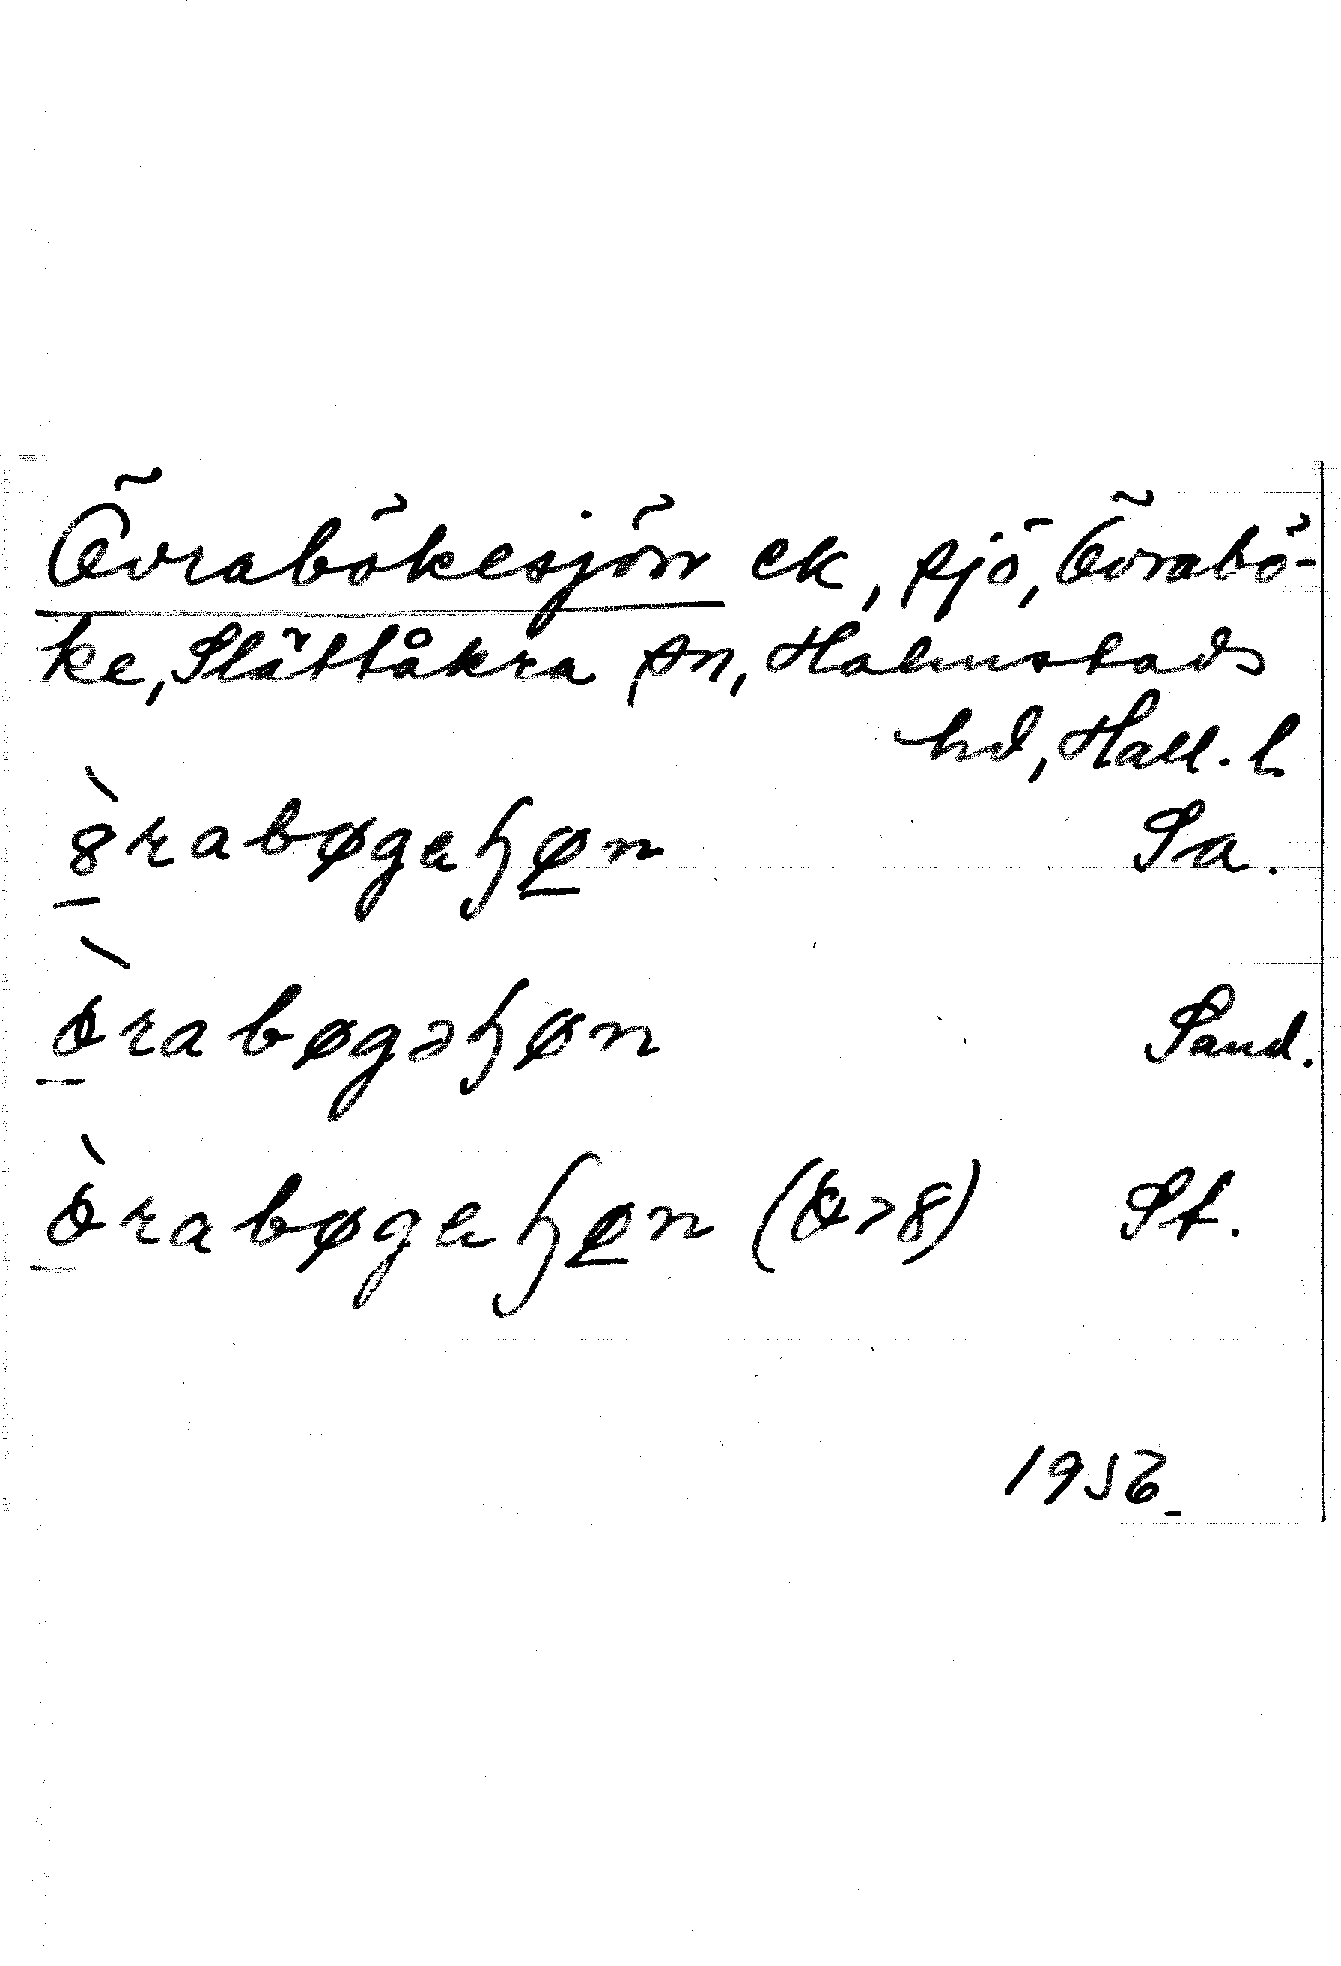 Övrabökesjön ek, sjö, Övrabö-
ke, Slättåkra sn, Halmstads
hd, Hall. l.
8̀rabøgeɧøn Sa.
ò̀rabøgəɧøn Sand.
ò̀rabøgeɧøn (ò>8) St.
1956